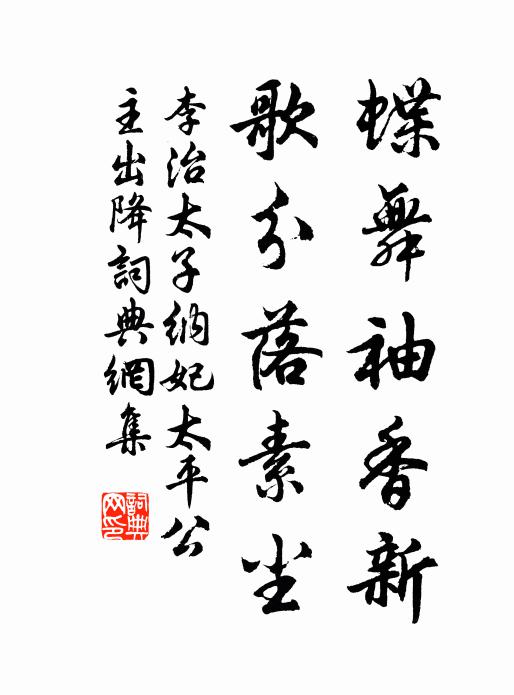 蝶舞袖香新
歌分落素尘
李治太子纳妃太平公
主出降詞典網集
詞典网印